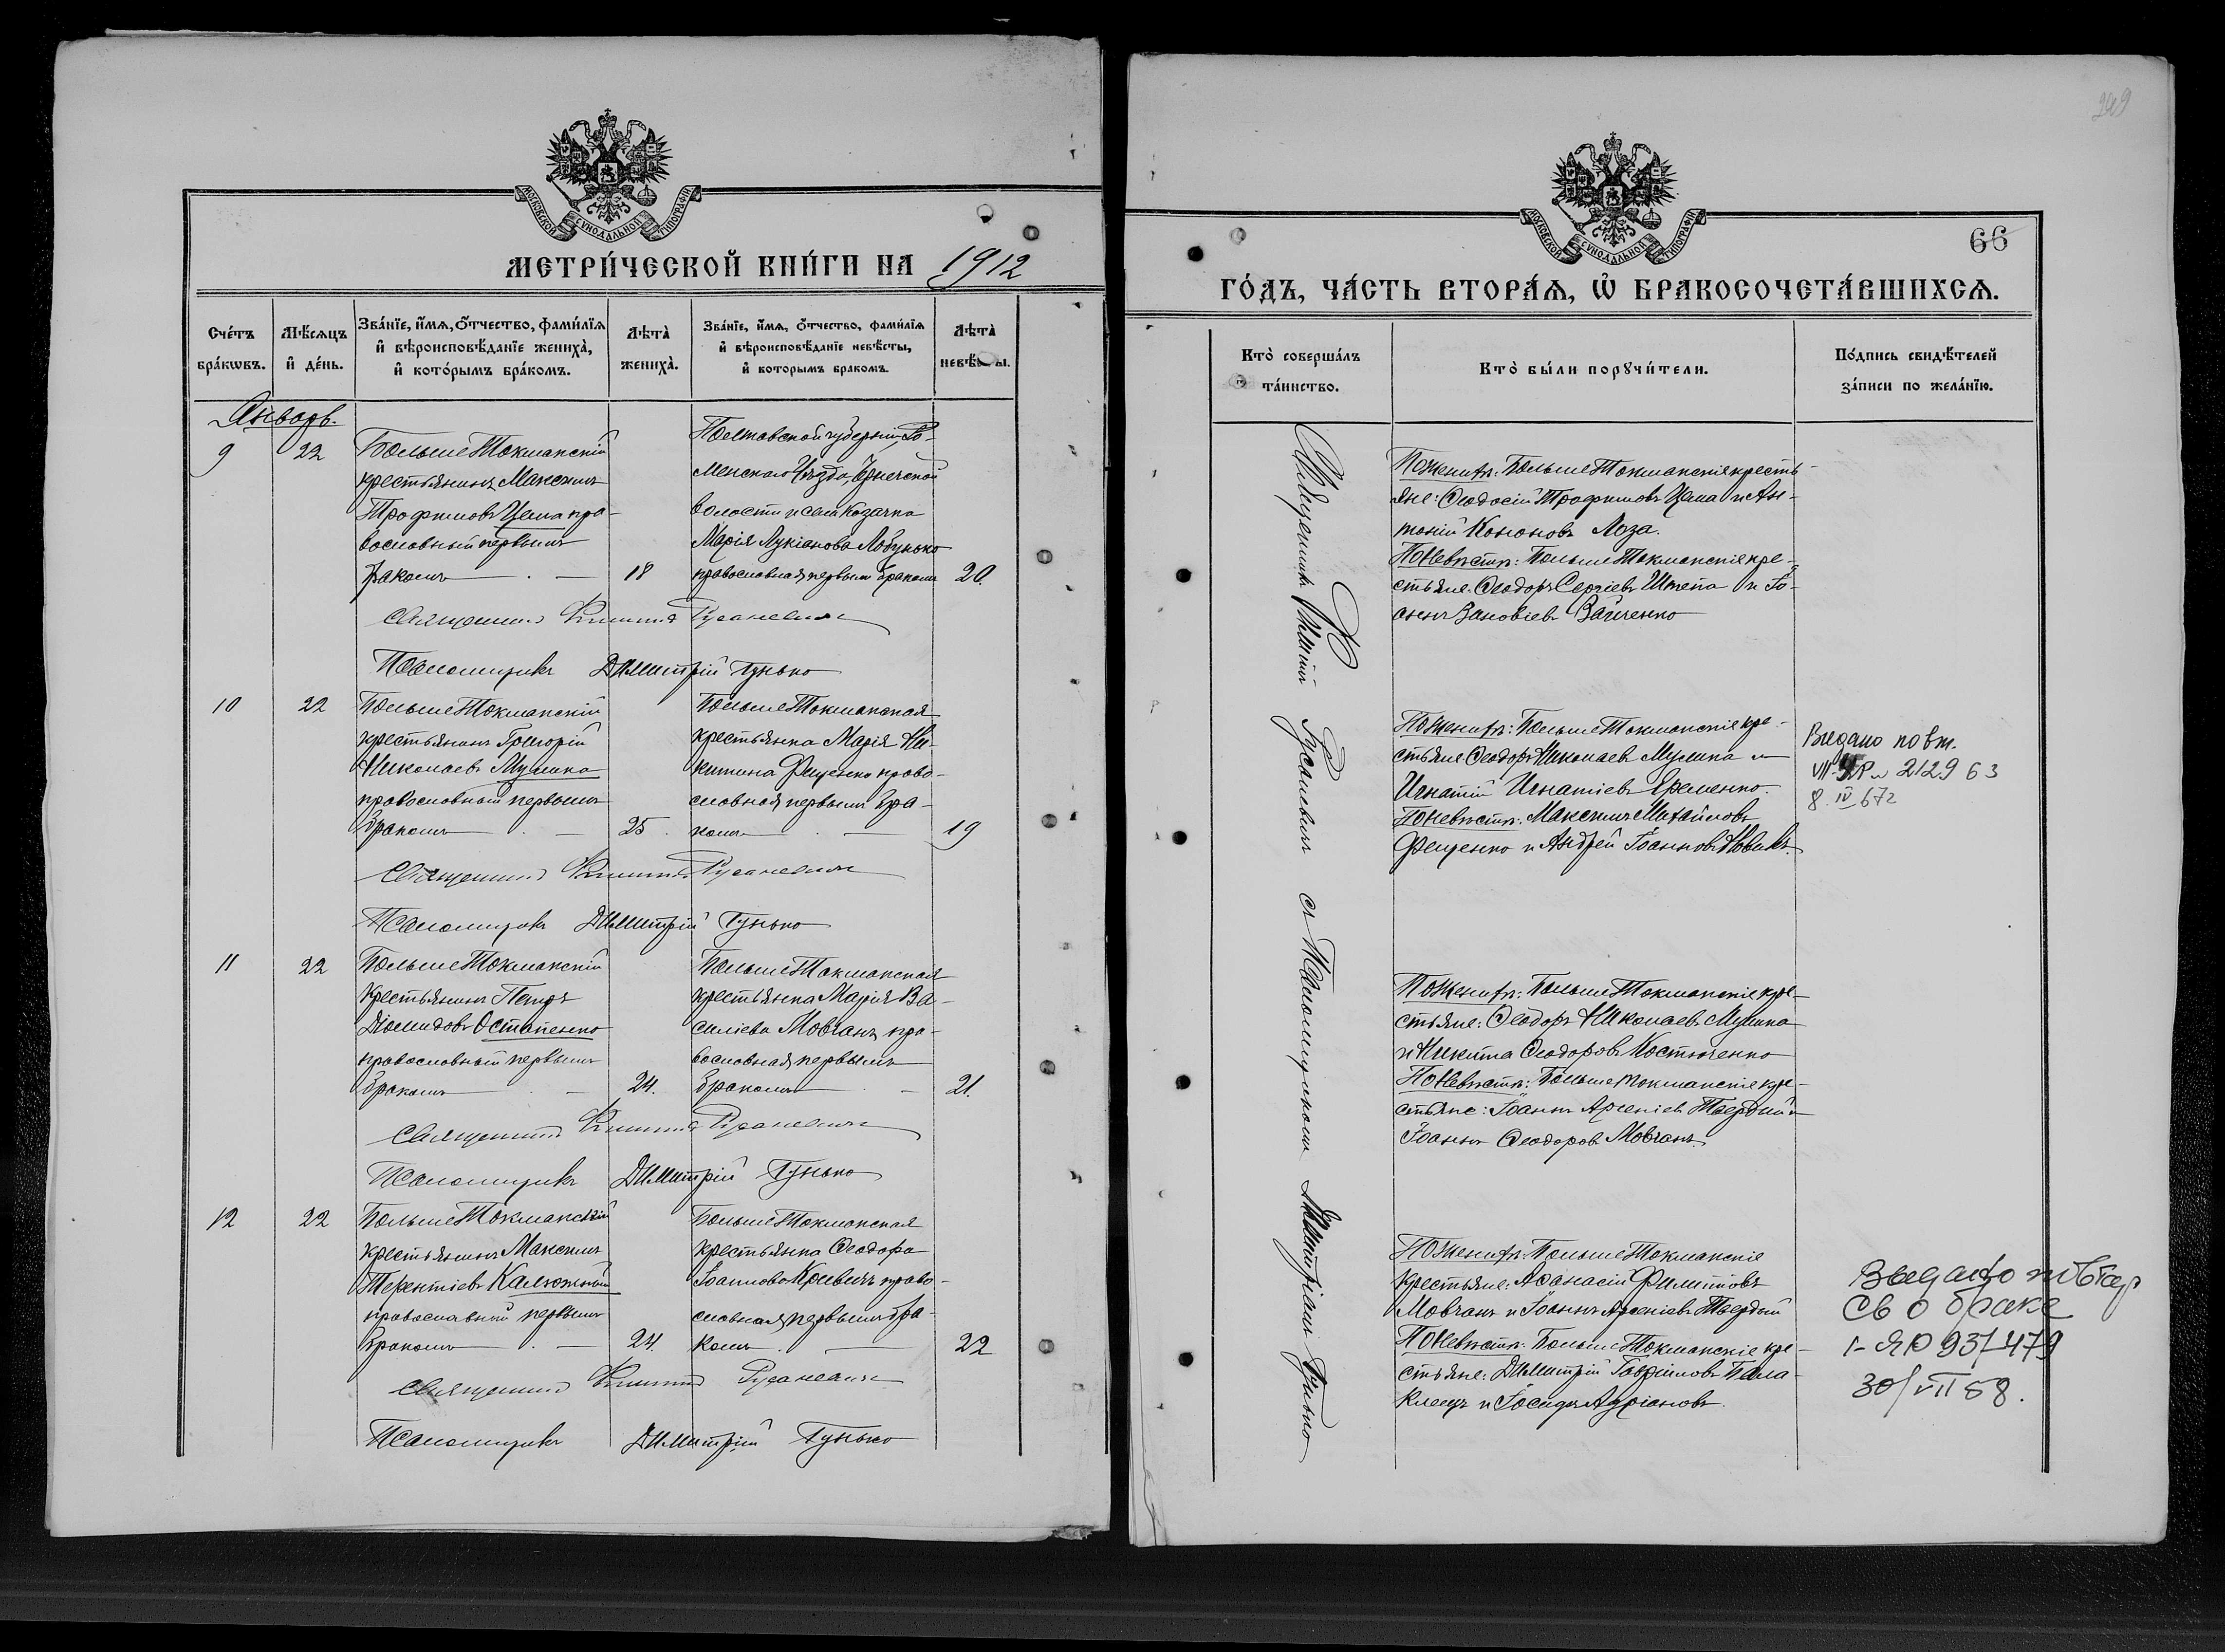 МОСКОВСКОЙ СУНОДАЛЬНОЙ ТИПОГРАФІИ
МЕТРИ́ЧЕСКОЙ КНИ́ГИ НА 1912
Сче́тъ бра́кωвъ.
Мѣ́сѧцъ и҆ де́нь.
Зва́нїе, и҆́мѧ, ѻ҆́тчество, фами́лїѧ и҆ вѣроисповѣ́данїе жениха̀, и҆ кото́рымъ бра́комъ.
Лѣта̀ жениха̀.
Зва́нїе, и҆́мѧ, ѻ҆́тчество, фами́лїѧ и҆ вѣроисповѣ́данїе невѣ́сты, и҆ которымъ бракомъ.
Лѣта̀
Январь.
9
22
Больше Токмакскій
крестьянинъ Максимъ
Трофимовъ Цема пра-
вославный первымъ
бракомъ
18
Полтавской губерніи, Ро-
менскаго Уѣзда,
волости и села Козачка
Марія Лукіанова Лобунько
православная первымъ бракомъ
20.
Священникъ Русаневичъ
Псаломщикъ Димитрій Гунько
10
22
Больше Токмакскій
крестьянинъ Григорій
Николаевъ Мушика
православный первымъ
бракомъ
25.
Больше Токмакская
крестьянка Марія Ни-
китина Фещенко право-
славная первымъ бра-
комъ
19
Священникъ Русаневичъ
Псаломщикъ Димитрій Гунько
11
22
Больше Токмакскій
крестьянинъ Петръ
Діомидовъ Остапенко
православный первымъ
бракомъ
24.
Больше Токмакская
крестьянка Марія Ва-
силіева Мовчанъ пра-
вославная первымъ
бракомъ
21.
Священникъ Русаневичъ
Псаломщикъ Димитрій Гунько
12
22
Больше Токмакскій
крестьянинъ Максимъ
Терентіевъ Калюжный
православный первымъ
бракомъ
24.
Больше Токмакская
крестьянка Ѳеодора
Іоаннова Кривичъ право-
славная первымъ бра-
комъ
22
Священникъ Русаневичъ
Псаломщикъ Димитрій Гунько
249
МОСКОВСКОЙ СУНОДАЛЬНОЙ ТИПОГРАФІИ
66
ГО́ДЪ, ЧА́СТЬ ВТОРА́Ѧ, Ѽ БРАКОСОЧЕТА́ВШИХСѦ.
Кто̀ соверша́лъ та́инство.
Кто̀ бы́ли порꙋчи́тели.
По́дпись свидѣ́телей за́писи по жела́нїю.
Священникъ Русаневичъ съ Псаломщикомъ Димитріемъ Гунько
По женихѣ: Больше Токмакскіе кресть-
яне: Ѳеодосій Трофимовъ Цема и Ан-
тоній Кононовъ Лоза.
По невѣстѣ: Больше Токмакскіе кре-
стьяне: Ѳеодоръ Сергіевъ Шкепа и Іо-
аннъ Зиновіевъ Вайченко
По женихѣ: Больше Токмакскіе кре-
стьяне Ѳеодоръ Николаевъ Мушика и
Игнатій Игнатіевъ Еременко.
По невѣстѣ: Максимъ Михайловъ
Фещенко и Андрей Іоанновъ Новикъ.
Выдано повт.
2129 63
8. IV 67г
По женихѣ: Больше Токмакскіе кре-
стьяне: Ѳеодоръ Николаевъ Мушика
и Никита Ѳеодоровъ Костюченко
По невѣстѣ: Больше Токмакскіе кре-
стьяне: Іоаннъ Арсеніевъ Твердый и
Іоаннъ Ѳеодоровъ Мовчанъ.
По женихѣ: Больше Токмакскіе
крестьяне: Аѳанасій Филипповъ
Мовчанъ и Іоаннъ Арсеніевъ Твердый
По невѣстѣ: Больше Токмакскіе кре-
стьяне: Димитрій Гавриловъ Бала-
клеецъ и Іосифъ Адріановъ.
Выдано повтор
св о браке
I-ЯР 937479
30/VII 58.